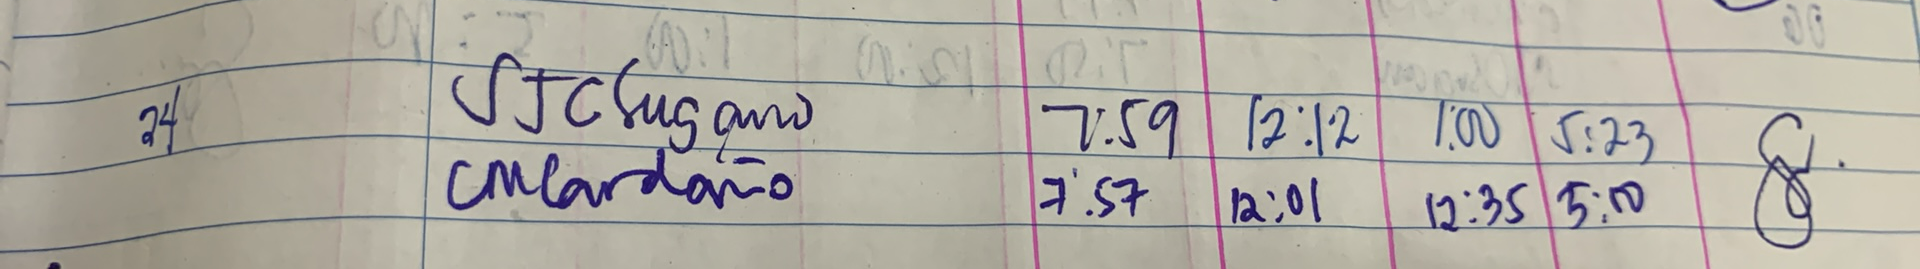 24 SJCSugano 7:59 12:12 1:00 5:23
CMCardaño 7:57 12:01 12:35 5:00